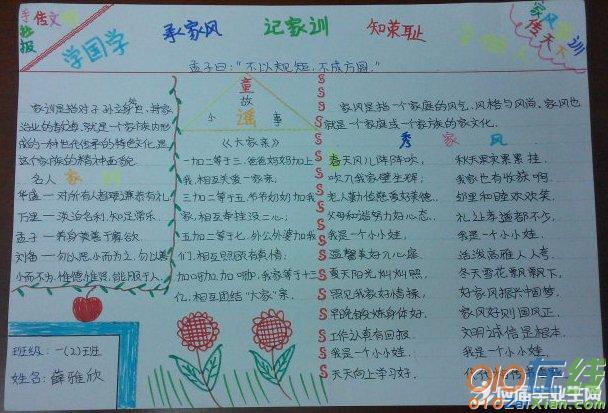 手传文
抄报
学国学
承家风
记家训
知荣耻
家风
训
传天
孟子曰："不以规矩，不成方圆。"
家训是指对子孙立身处
治业的教诲，就是一个家族内形
成的一种世代传承的特色文化，是
这个家族的精神面貌
名人
华盛一对所有人都彬彬有礼
万里一淡泊名利，知足常乐。
孟子一养身莫善于寡欲
刘备一勿以恶小而为之，勿以善
小而不为，惟德惟贤，能服于人。
班级：一(2)班
姓名：薛雅欣
童
故
小 谣 事
《大家亲》
一加二等于三，爸爸妈妈加上
我，相互关爱一家亲，
三加二等于五，爷爷奶奶加我
家，相互牵挂没二心；
五加二等于七，外公外婆加我
们，相互照顾有真情；
加呀加，加呀加，我家等于十三
亿，相互团结"大家"亲。
家风是指一个家庭的风气，风格与风尚。家风也
就是一个家庭或一个家族的家文化。
秀家风
春天风儿阵阵吹，
秋天果实累累挂，
吹入我家壁生辉；
我家也有收获啊
老人勤俭慈善好美德，
邻里和睦欢欢笑，
父母和谐努力好心态，
礼让孝道都不少，
我是一个小小娃，
我是一个小小娃，
温馨美好入心庭
活泼高雅人人夸。
夏天阳光灿灿照，
冬天雪花飘飘下，
照见我家好情操，
好家风振兴中国梦，
早晚锻炼身体好，
家风好则国风正，
工作认真有回报，
文明诚信是根本，
我是一个小小娃，
我是一个小小娃，
天天向上学习好。
910在线
910ZaiXian.com
应届毕业生网